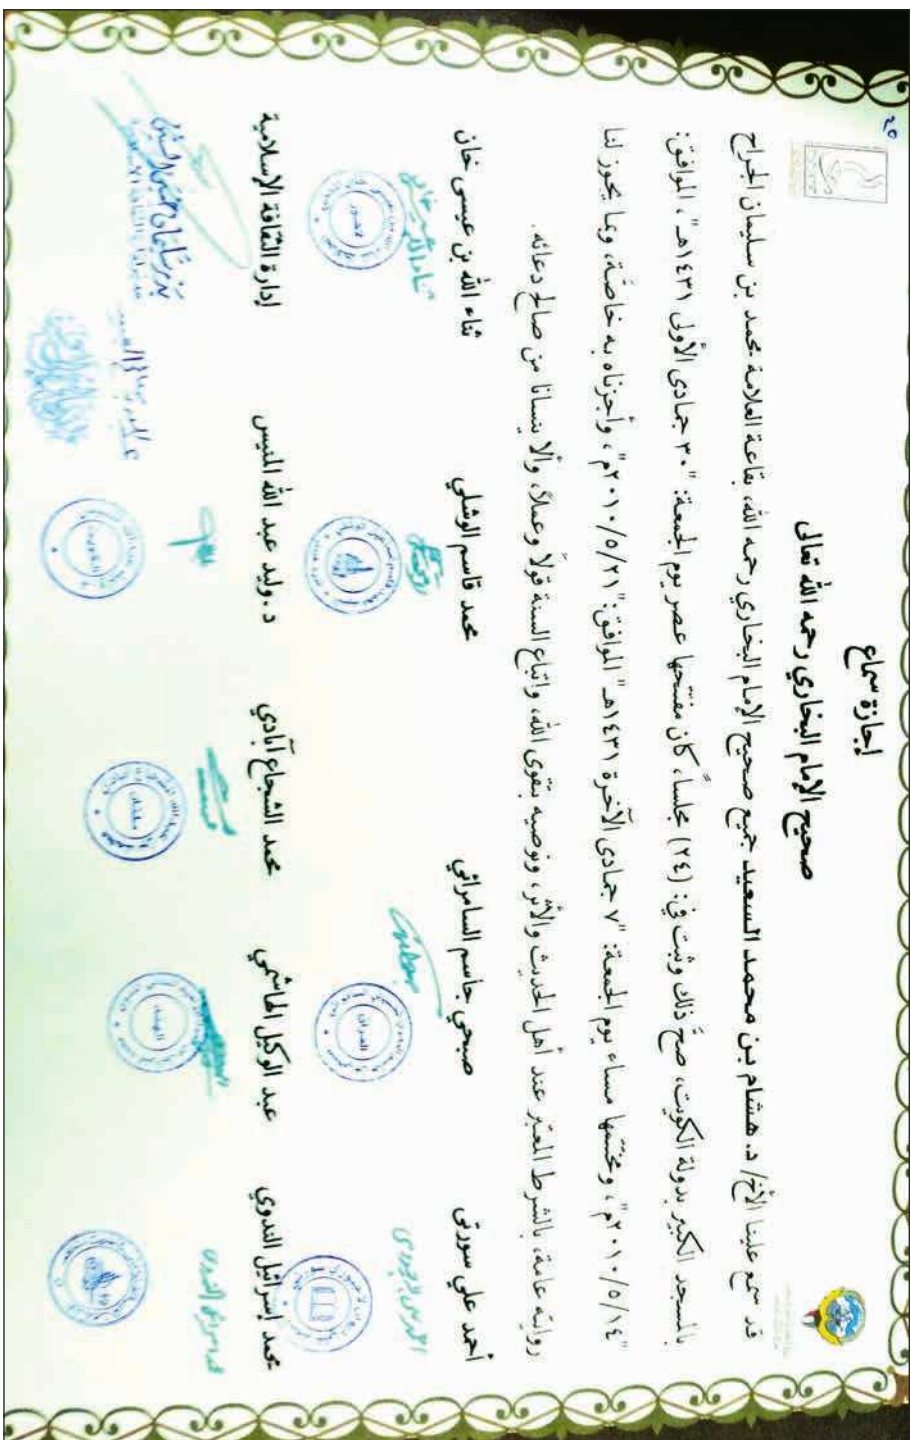 ٢٥
إجازة سماع
صحيح الإمام البخاري رحمه الله تعالى
قد سمع علينا الأخ/ د. هشام بن محمد السعيد جميع صحيح الإمام البخاري رحمه الله، بقاعة العلامة محمد بن سليمان الجراح
بالمسجد الكبير بدولة الكويت، صحّ ذلك وثبت في: (٢٤) مجلساً، كان مفتتحها عصر يوم الجمعة: "٣٠ جمادى الأولى ١٤٣١هـ"، الموافق:
"٢٠١٠/٥/١٤م"، ومختتمها مساء يوم الجمعة: "٧ جمادى الآخرة ١٤٣١هـ" الموافق: "٢٠١٠/٥/٢١م"، وأجزناه به خاصّة، وبما يجوز لنا
روايته عامة، بالشرط المعتبر عند أهل الحديث والأثر، ونوصيه بتقوى الله، واتباع السنة قولاً وعملاً، وألا ينسانا من صالح دعائه.
أحمد علي سورتي صبحي جاسم السامرائي محمد قاسم الوشلي ثناء الله بن عيسى خان
العراق
محمد إسرائيل الندوي عبد الوكيل الهاشمي محمد الشجاع آبادي د. وليد عبد الله المنيس إدارة الثقافة الإسلامية
محمد اسرائيل الندوي
الهند